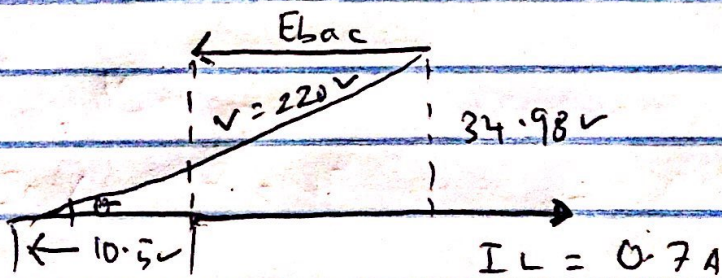 Ebac
V = 220 v
34.98 v
θ
10.5 v
IL = 0.7 A